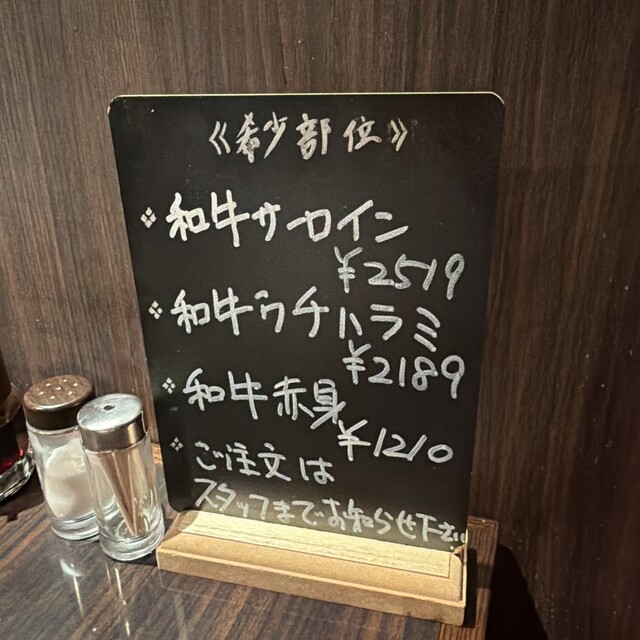 《希少部位》
❖和牛サーロイン
¥2519
❖和牛ウチハラミ
¥2189
❖和牛赤身
¥1210
❖ご注文は
スタッフまでお知らせ下さい